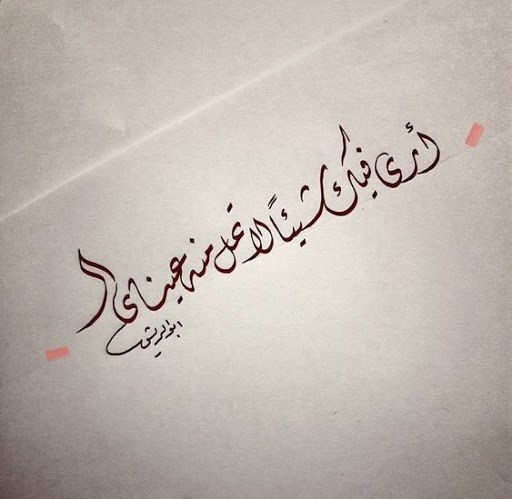 أرى فيك شيئاً لا تمل منه عيناي
ابوالريش